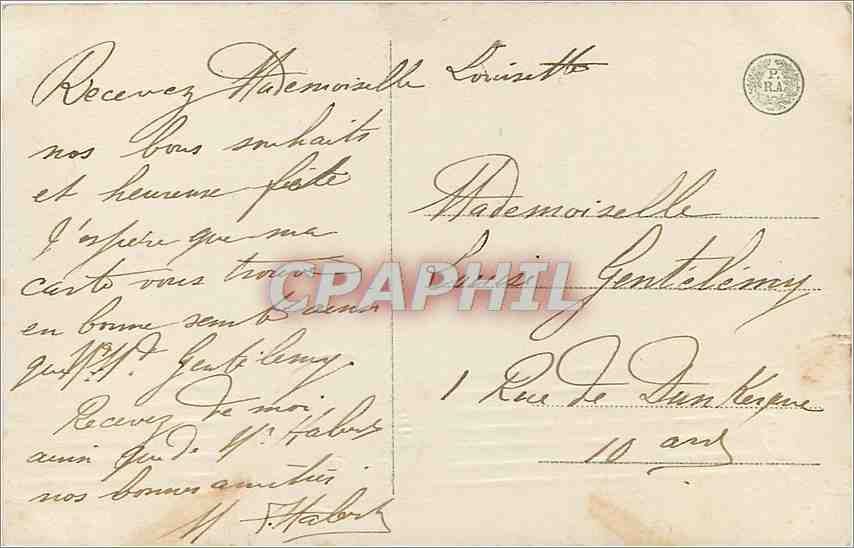 Recevez Mademoiselle Louisette
nos bons souhaits
et heureuse fête
J'espère que ma
carte vous trouve
en bonne santé ainsi
que Mr Md Gentilemy.
Recevez de moi
ainsi que de Mr Habert
nos bonnes amitiés.
M F. Habert
P.
R.A.
Mademoiselle
Louise Gentélémy
1 Rue de Dunkerque
10 ard
CPAPHIL